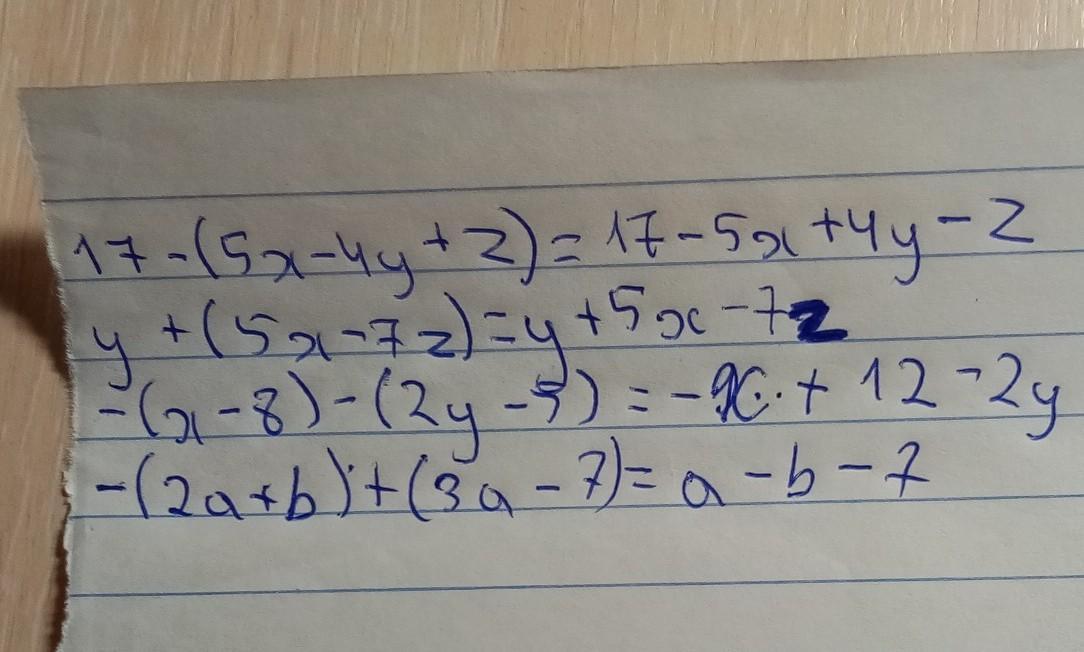 17-(5x-4y+z)=17-5x+4y-z
y+(5x-7z)=y+5x-7z
-(x-8)-(2y-5)=-x+12-2y
-(2a+b)+(3a-7)=a-b-7